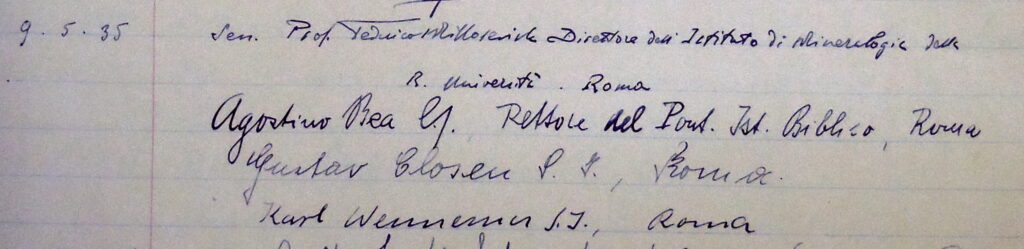 9.5.35 Sen. Prof. Federico Millosevich Direttore dell'Istituto di Mineralogia della
R. Università. Roma
Agostino Bea S.J. Rettore del Pont. Ist. Biblico, Roma
Gustav Closen S. J., Roma.
Karl Wennemer S.J., Roma